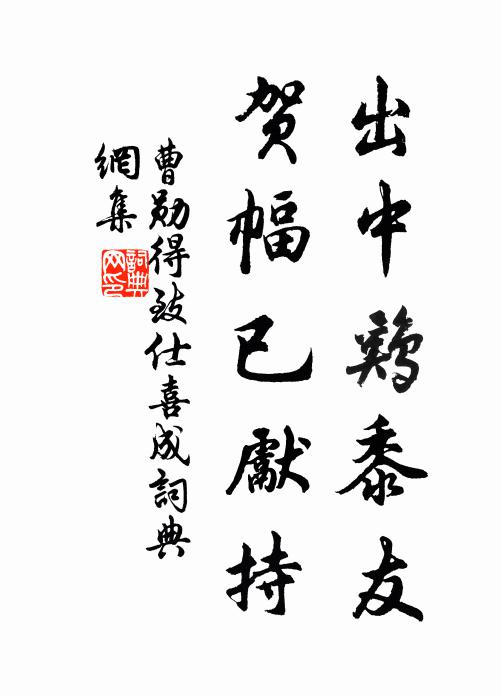 出中鷄黍友
賀幅已獻持
曹勛得致仕喜成詞典
網集
詞典
网印